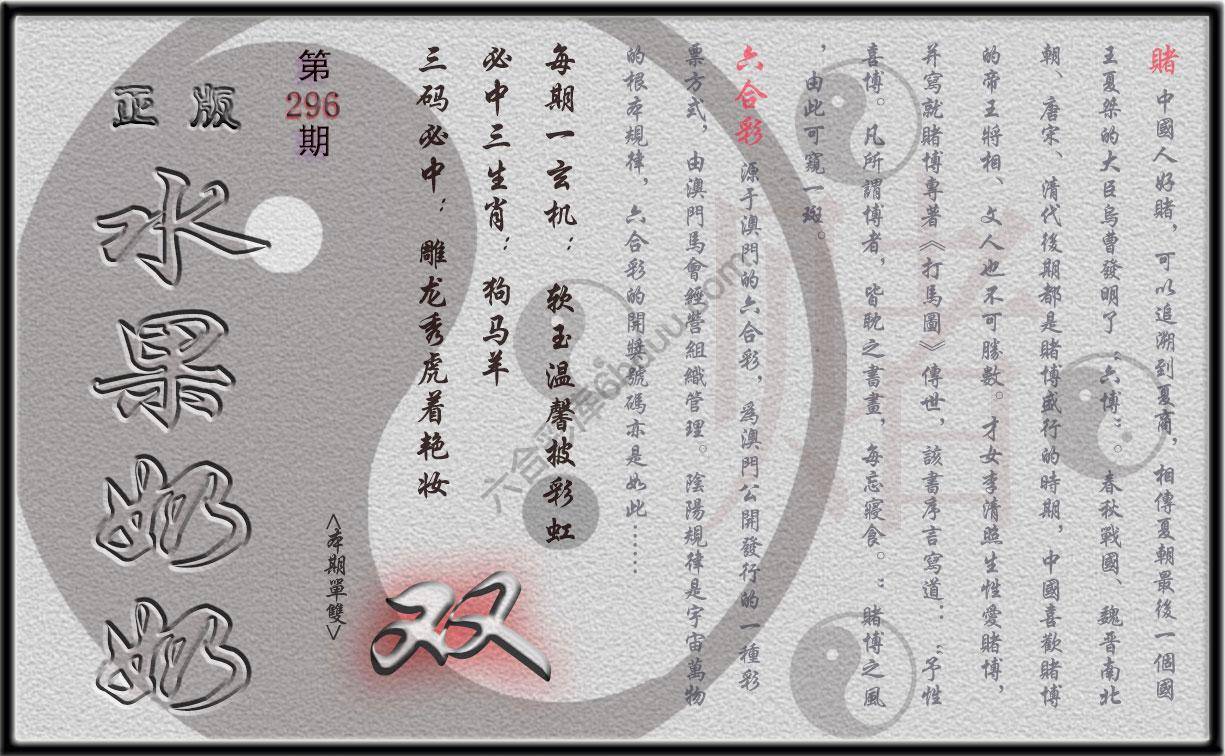 賭 中國人好賭，可以追溯到夏商，相傳夏朝最後一個國
王夏桀的大臣烏曹發明了“六博”。春秋戰國、魏晋南北
朝、唐宋、清代後期都是賭博盛行的時期，中國喜歡賭博
的帝王將相、文人也不可勝數。才女李清照生性愛賭博，
并寫就賭博專著《打馬圖》傳世，該書序言寫道：“予性
喜博。凡所謂博者，皆耽之書畫，每忘寢食。”賭博之風
，由此可窺一斑。
六合彩 源于澳門的六合彩，爲澳門公開發行的一種彩
票方式，由澳門馬會經營組織管理。陰陽規律是宇宙萬物
的根本規律，六合彩的開獎號碼亦是如此……
每期一玄机：软玉温馨披彩虹
必中三生肖：狗马羊
三码必中：雕龙秀虎着艳妆
第
296
期
<本期單雙>
双
正版
水果奶奶
賭